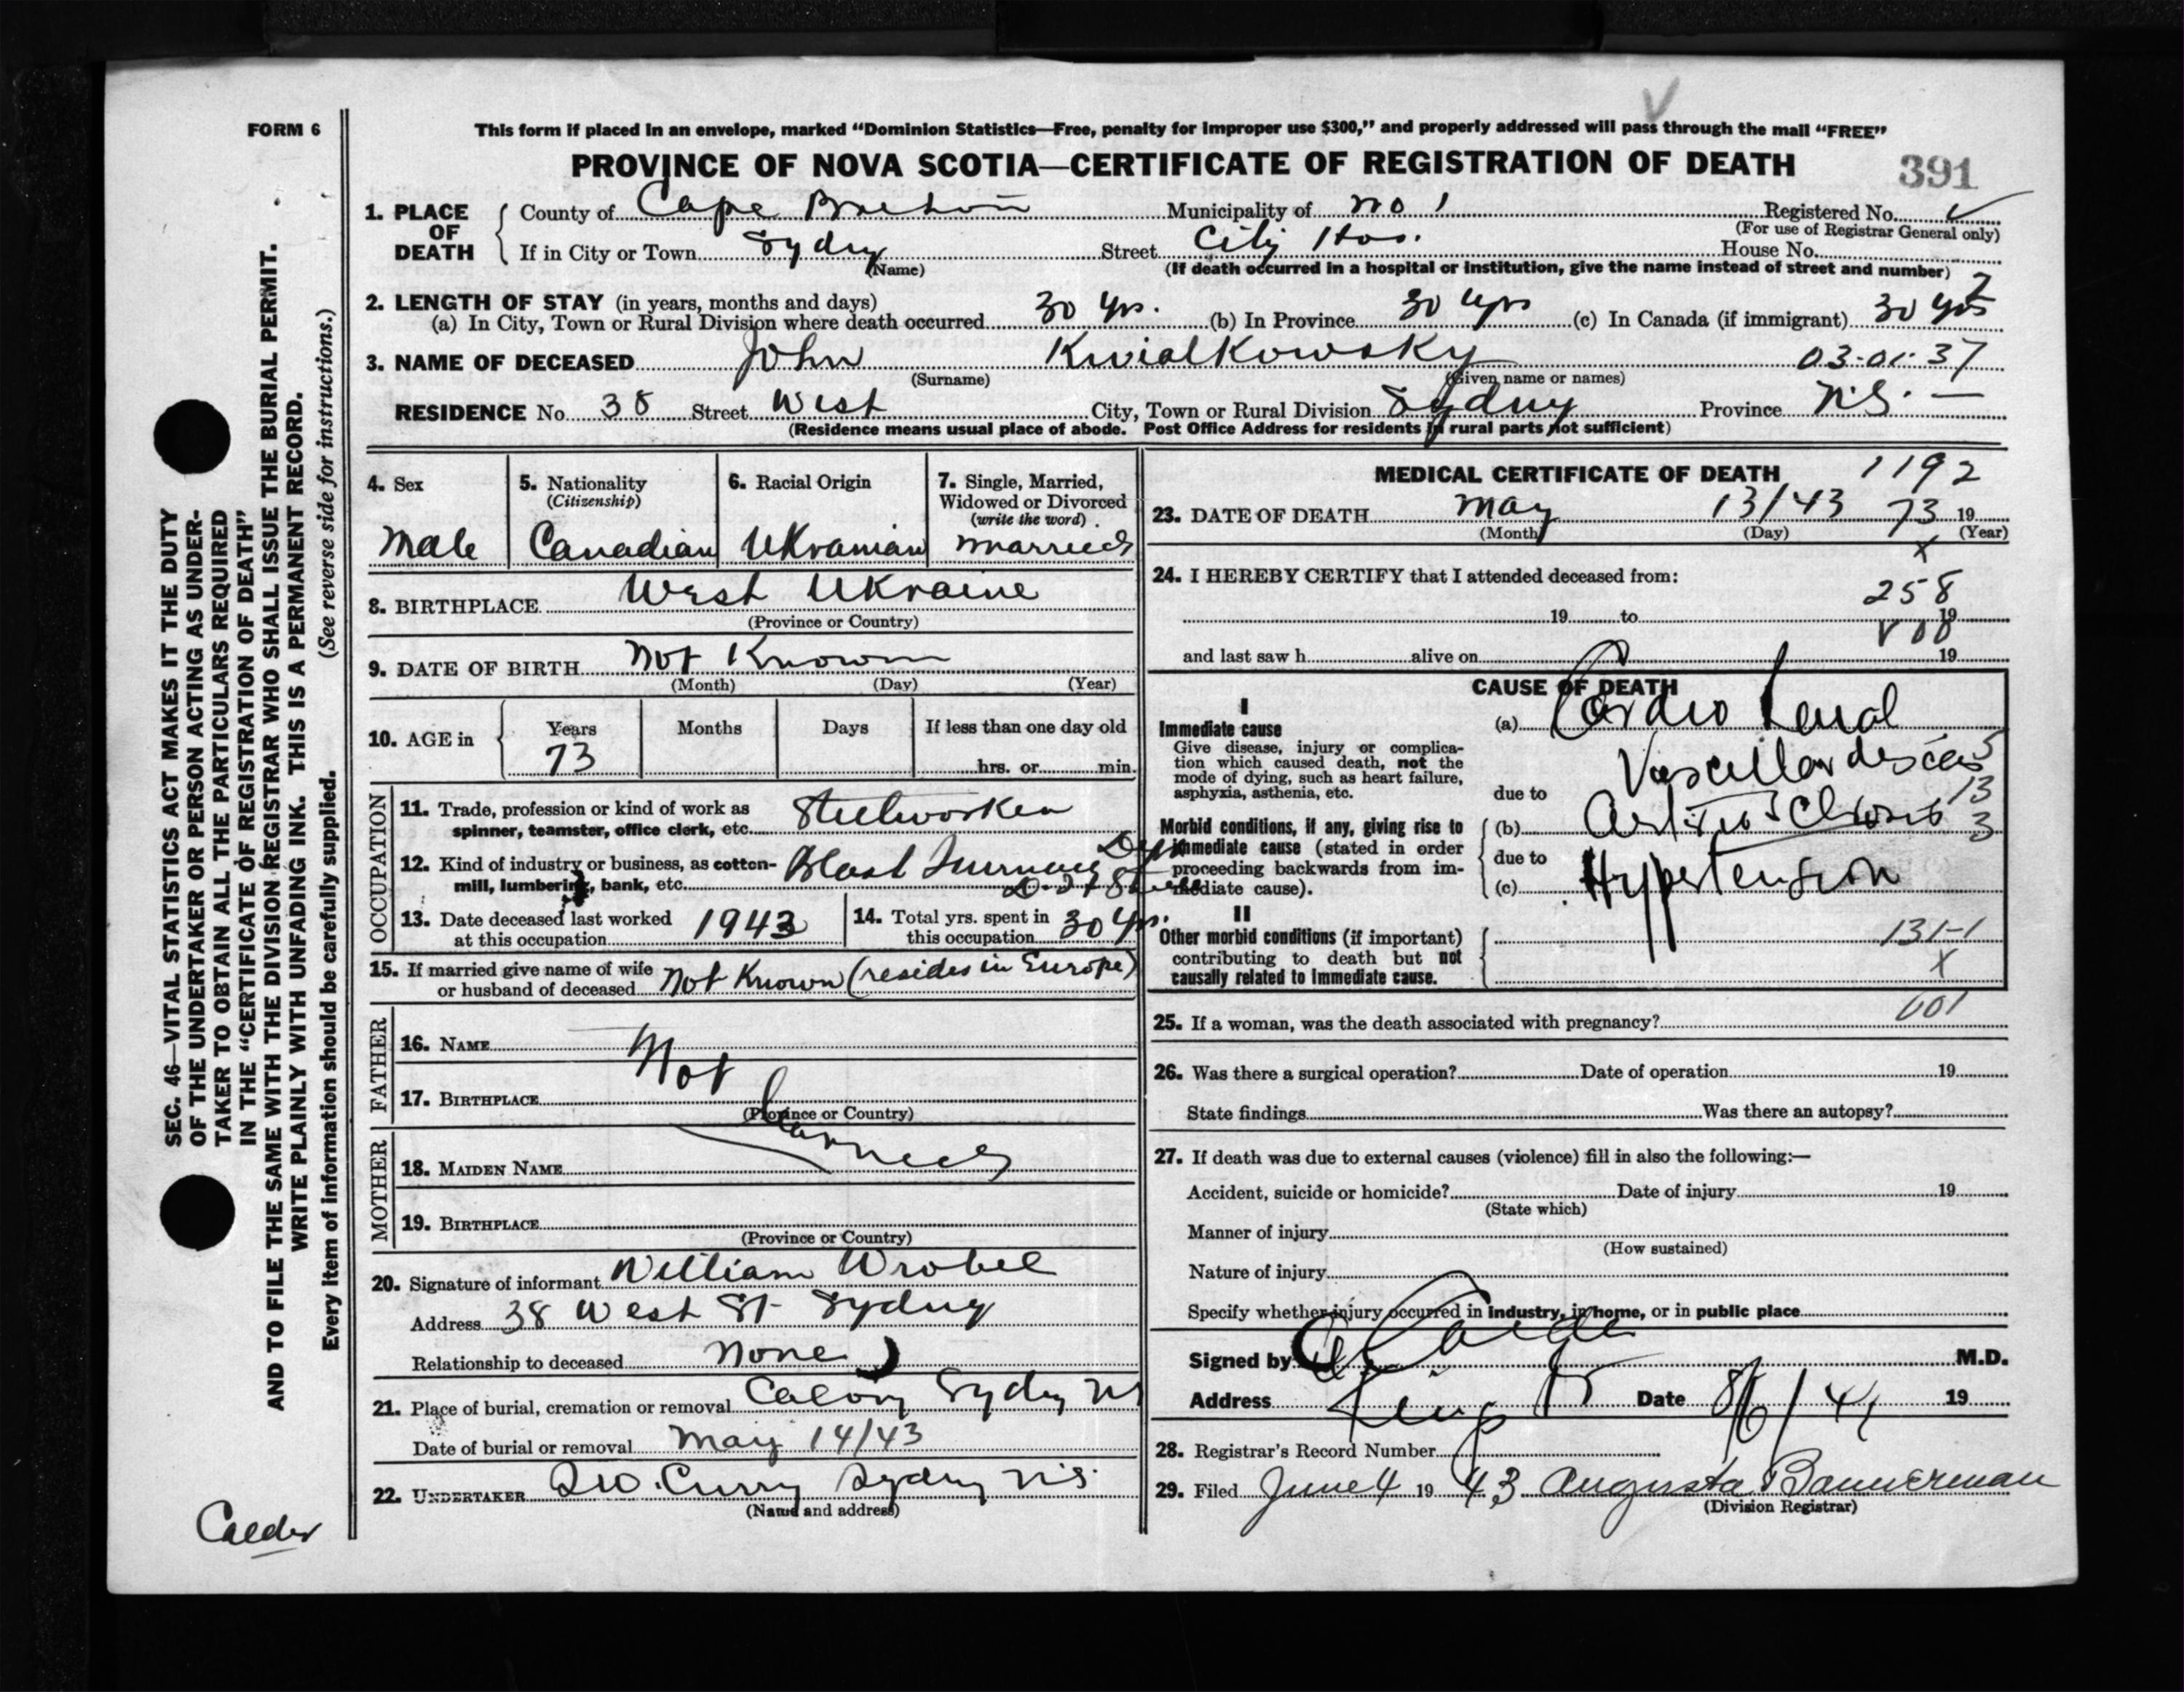 FORM 6
This form if placed in an envelope, marked “Dominion Statistics—Free, penalty for improper use $300,” and properly addressed will pass through the mail “FREE”
PROVINCE OF NOVA SCOTIA—CERTIFICATE OF REGISTRATION OF DEATH 391
1. PLACE OF DEATH
County of Cape Breton Municipality of No 1 Registered No.
(For use of Registrar General only)
If in City or Town Sydney Street City Hos. House No.
(Name) (If death occurred in a hospital or institution, give the name instead of street and number)
2. LENGTH OF STAY (in years, months and days)
(a) In City, Town or Rural Division where death occurred 30 yrs. (b) In Province 30 yrs (c) In Canada (if immigrant) 30 yrs
3. NAME OF DECEASED John Kwialkowsky 03-01-37
(Surname) (Given name or names)
RESIDENCE No. 38 Street West City, Town or Rural Division Sydney Province N.S. —
(Residence means usual place of abode. Post Office Address for residents in rural parts not sufficient)
4. Sex
Male
5. Nationality
(Citizenship)
Canadian
6. Racial Origin
Ukranian
7. Single, Married,
Widowed or Divorced
(write the word)
Married
8. BIRTHPLACE West Ukraine
(Province or Country)
9. DATE OF BIRTH Not Known
(Month) (Day) (Year)
10. AGE in
Years Months Days If less than one day old
73 hrs. or min.
OCCUPATION
11. Trade, profession or kind of work as
spinner, teamster, office clerk, etc. Steelworker
12. Kind of industry or business, as cotton-
mill, lumbering, bank, etc. Blast Furnace
13. Date deceased last worked
at this occupation 1943
14. Total yrs. spent in
this occupation 30 yr.
15. If married give name of wife
or husband of deceased Not Known (resides in Europe)
FATHER
16. NAME Not
17. BIRTHPLACE
(Province or Country)
MOTHER
18. MAIDEN NAME
19. BIRTHPLACE
(Province or Country)
20. Signature of informant William Wrobel
Address 38 West St Sydney
Relationship to deceased None
21. Place of burial, cremation or removal Sydney NS
Date of burial or removal May 14/43
22. UNDERTAKER Curry Sydney N.S.
(Name and address)
MEDICAL CERTIFICATE OF DEATH 1192
23. DATE OF DEATH May 13/43 73 19
(Month) (Day) (Year)
x
24. I HEREBY CERTIFY that I attended deceased from:
258
19 to 19
and last saw h alive on 19
CAUSE OF DEATH
I
Immediate cause
Give disease, injury or complica-
tion which caused death, not the
mode of dying, such as heart failure,
asphyxia, asthenia, etc.
(a) Cardio Renal
Vascular 5
due to 13
Morbid conditions, if any, giving rise to
immediate cause (stated in order
proceeding backwards from im-
mediate cause).
(b) 3
due to
(c) Hypertension
II
Other morbid conditions (if important)
contributing to death but not
causally related to immediate cause.
131-1
x
001
25. If a woman, was the death associated with pregnancy?
26. Was there a surgical operation? Date of operation 19
State findings Was there an autopsy?
27. If death was due to external causes (violence) fill in also the following:—
Accident, suicide or homicide? Date of injury 19
(State which)
Manner of injury
(How sustained)
Nature of injury
Specify whether injury occurred in industry, in home, or in public place
Signed by Calder M.D.
Address Date 19
28. Registrar's Record Number
29. Filed June 4 19 43 Augusta Bannerman
(Division Registrar)
SEC. 46—VITAL STATISTICS ACT MAKES IT THE DUTY
OF THE UNDERTAKER OR PERSON ACTING AS UNDER-
TAKER TO OBTAIN ALL THE PARTICULARS REQUIRED
IN THE “CERTIFICATE OF REGISTRATION OF DEATH”
AND TO FILE THE SAME WITH THE DIVISION REGISTRAR WHO SHALL ISSUE THE BURIAL PERMIT.
WRITE PLAINLY WITH UNFADING INK. THIS IS A PERMANENT RECORD.
Every item of information should be carefully supplied. (See reverse side for instructions.)
Calder